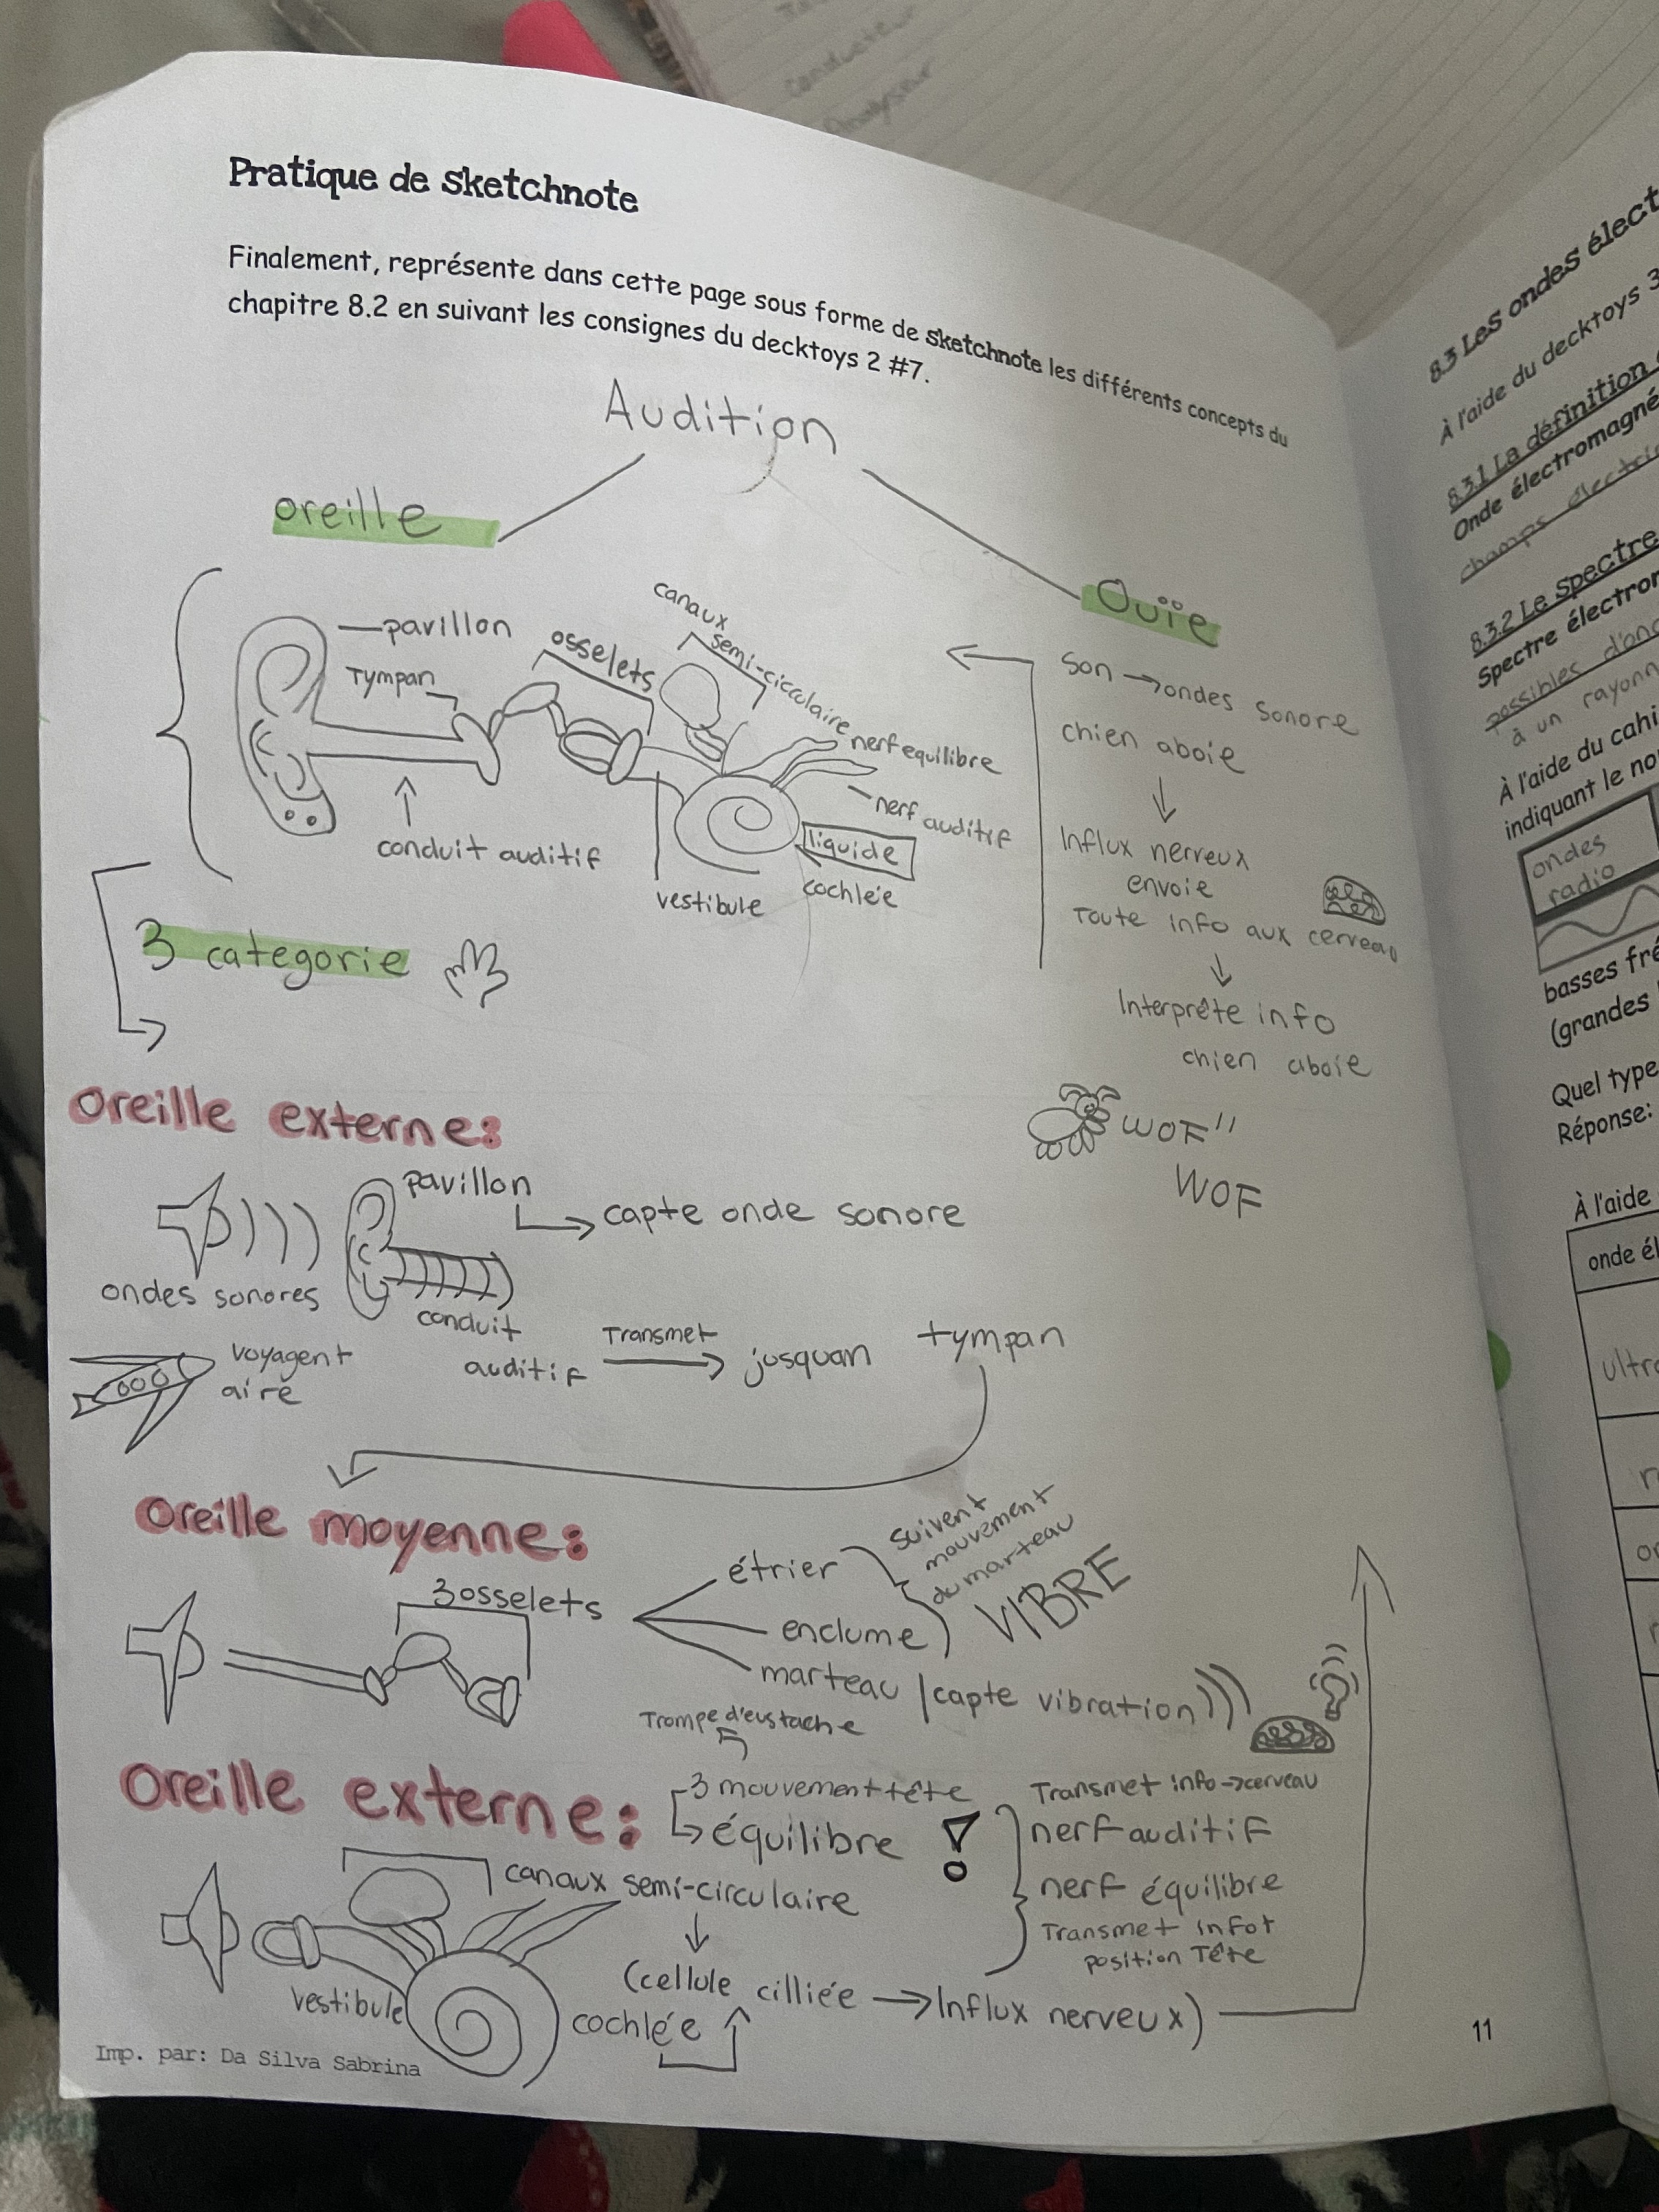 Pratique de sketchnote
Finalement, représente dans cette page sous forme de sketchnote les différents concepts du
chapitre 8.2 en suivant les consignes du decktoys 2 #7.
Audition
oreille
pavillon
Tympan
osselets
canaux
semi-ciculaire
nerf equilibre
nerf auditif
liquide
cochlée
vestibule
conduit auditif
Ouïe
Son → ondes sonore
chien aboie
↓
Influx nerveux
envoie
Toute info aux cerveau
↓
Interprête info
chien aboie
WOF"
WOF
3 categorie
Oreille externe:
pavillon
capte onde sonore
ondes sonores
conduit
auditif
Transmet
jusquan
tympan
voyagent
aire
Oreille moyenne:
3 osselets
étrier
enclume
suivent
mouvement
du marteau
VIBRE
marteau
capte vibration
Trompe d'eustache
Oreille externe:
3 mouvement tête
équilibre !
Transmet info → cerveau
nerf auditif
nerf équilibre
Transmet info
position Tête
canaux semi-circulaire
↓
(cellule cilliée → Influx nerveux)
cochlée
vestibule
Imp. par: Da Silva Sabrina
11
8.3 Les ondes élect
À l'aide du decktoys 3
8.3.1 La définition
Onde électromagné
champs
8.3.2 Le Spectre
Spectre électro
possibles d'on
à un rayonn
À l'aide du cahi
indiquant le no
ondes
radio
basses fré
(grandes
Quel type
Réponse:
À l'aide
onde él
ultr